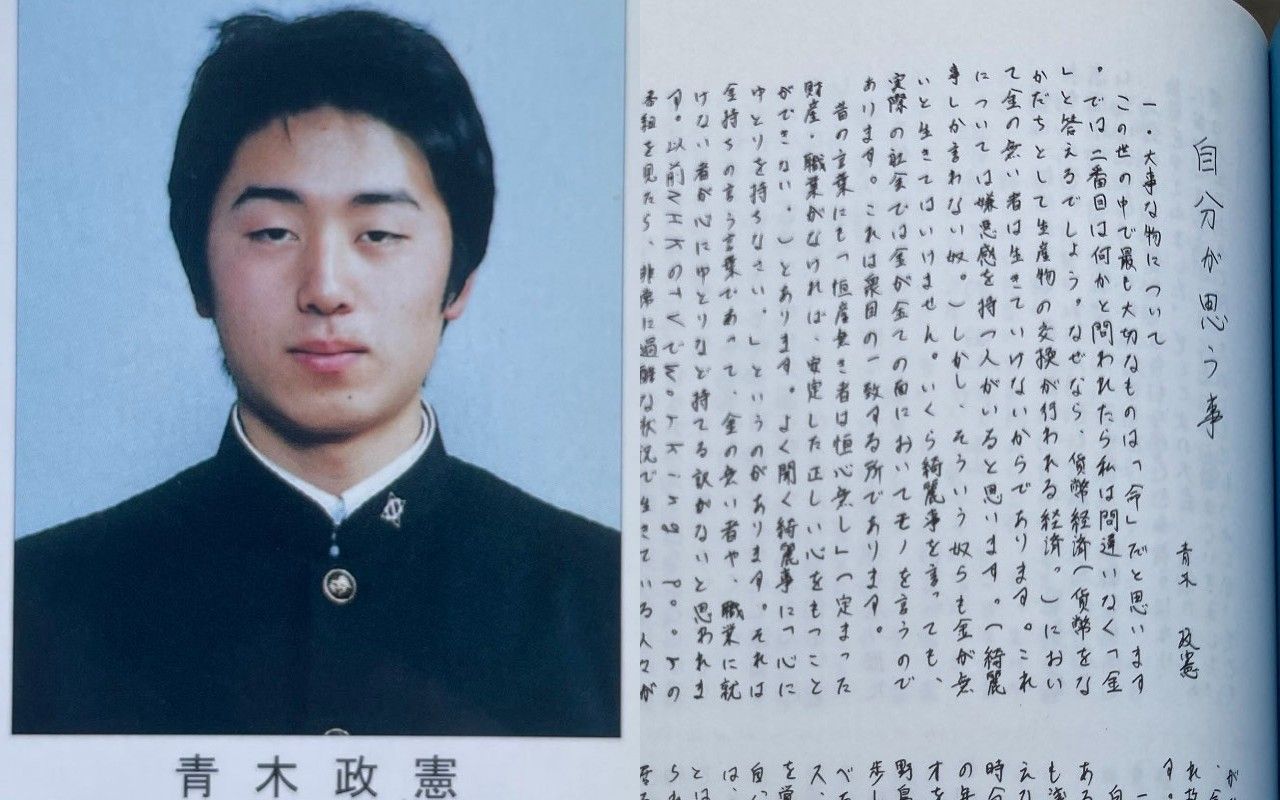 青木政憲
自分が思う事
青木 政憲
一.大事な物について
この世の中で最も大切なものは「命」だと思います
。では二番目は何かと問われたら私は間違いなく「金
」と答えるでしょう。なぜなら、貨幣経済(貨幣をな
かだちとして生産物の交換が行われる経済。)におい
て金の無い者は生きていけないからであります。これ
については嫌悪感を持つ人がいると思います。(綺麗
事しか言わない奴。)しかし、そういう奴らも金が無
いと生きてはいけません。いくら綺麗事を言っても、
実際の社会では金が全ての面においてモノを言うので
あります。これは衆目の一致する所であります。
昔の言葉にも「恒産無き者は恒心無し」(定まった
財産・職業がなければ、安定した正しい心をもつこと
ができない。)とあります。よく聞く綺麗事に「心に
ゆとりを持ちなさい。」というのがあります。それは
金持ちの言う言葉であって、金の無い者や、職業に就
けない者が心にゆとりなど持てる訳がないと思われま
す。以前NHKのTVでworking poorの
番組を見たら、非常に過酷な状況で生きている人々が